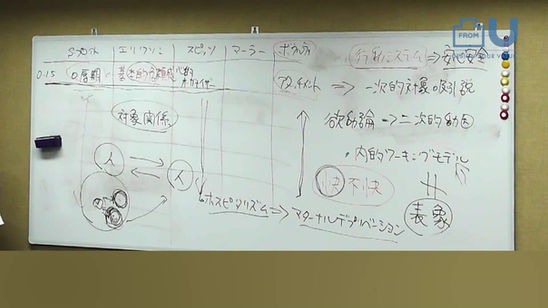 FROM U
フロイト エリクソン スピッツ マーラー ボウルビィ 行動システム ⇒ 安心安全
0~1.5 口唇期 基本的信頼感 心的オーガナイザー アタッチメント ⇒ 一次的対象吸引説
対象関係 欲動論 → 二次的動因
・内的ワーキングモデル
人 人 快 不快
表象
ホスピタリズム ⇒ マターナルデプリベーション